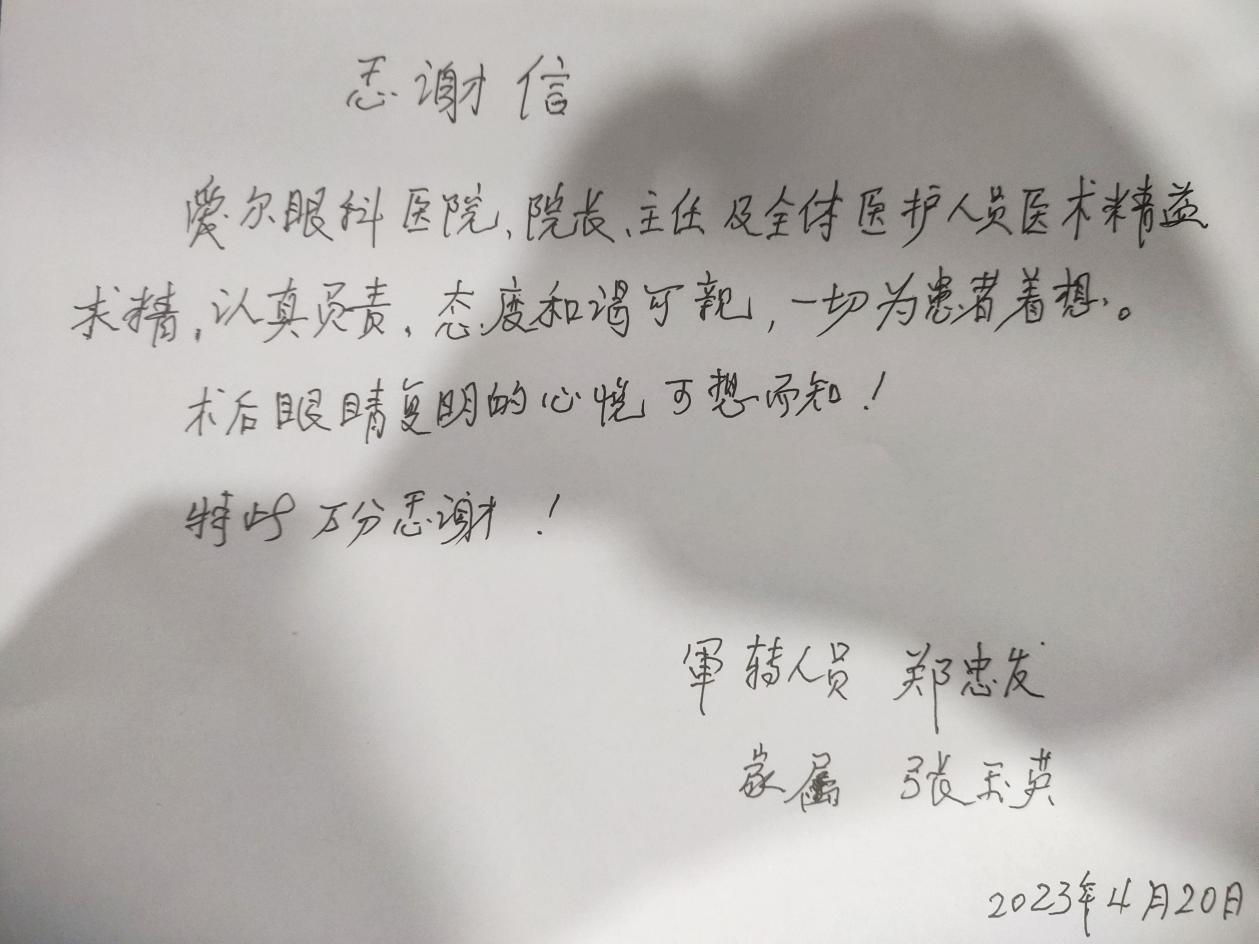 感谢信
爱尔眼科医院、院长、主任及全体医护人员医术精益
求精,认真负责,态度和谒可親,一切为患者着想。
术后眼睛复明的心悦可想而知!
特此万分感谢!
軍转人员 郑忠发
家属 张玉英
2023年4月20日